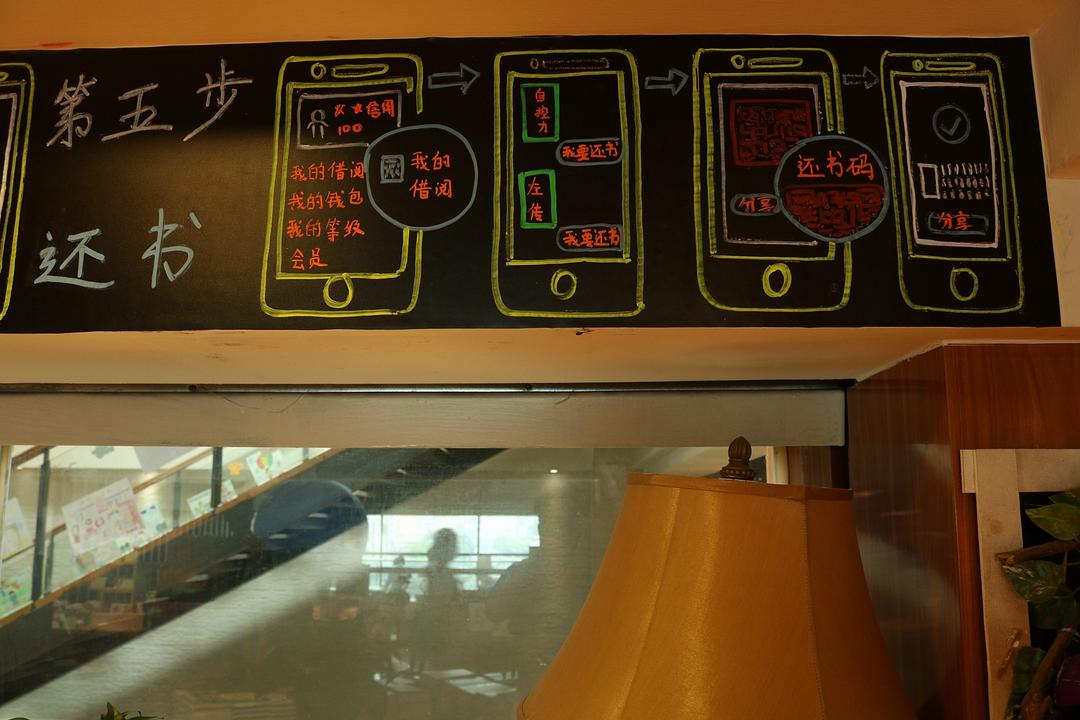 第五步
还书
信用
100
我的借阅
我的钱包
我的等级
会员
我的
借阅
自
控
力
我要还书
左
传
我要还书
分享
还书码
分享